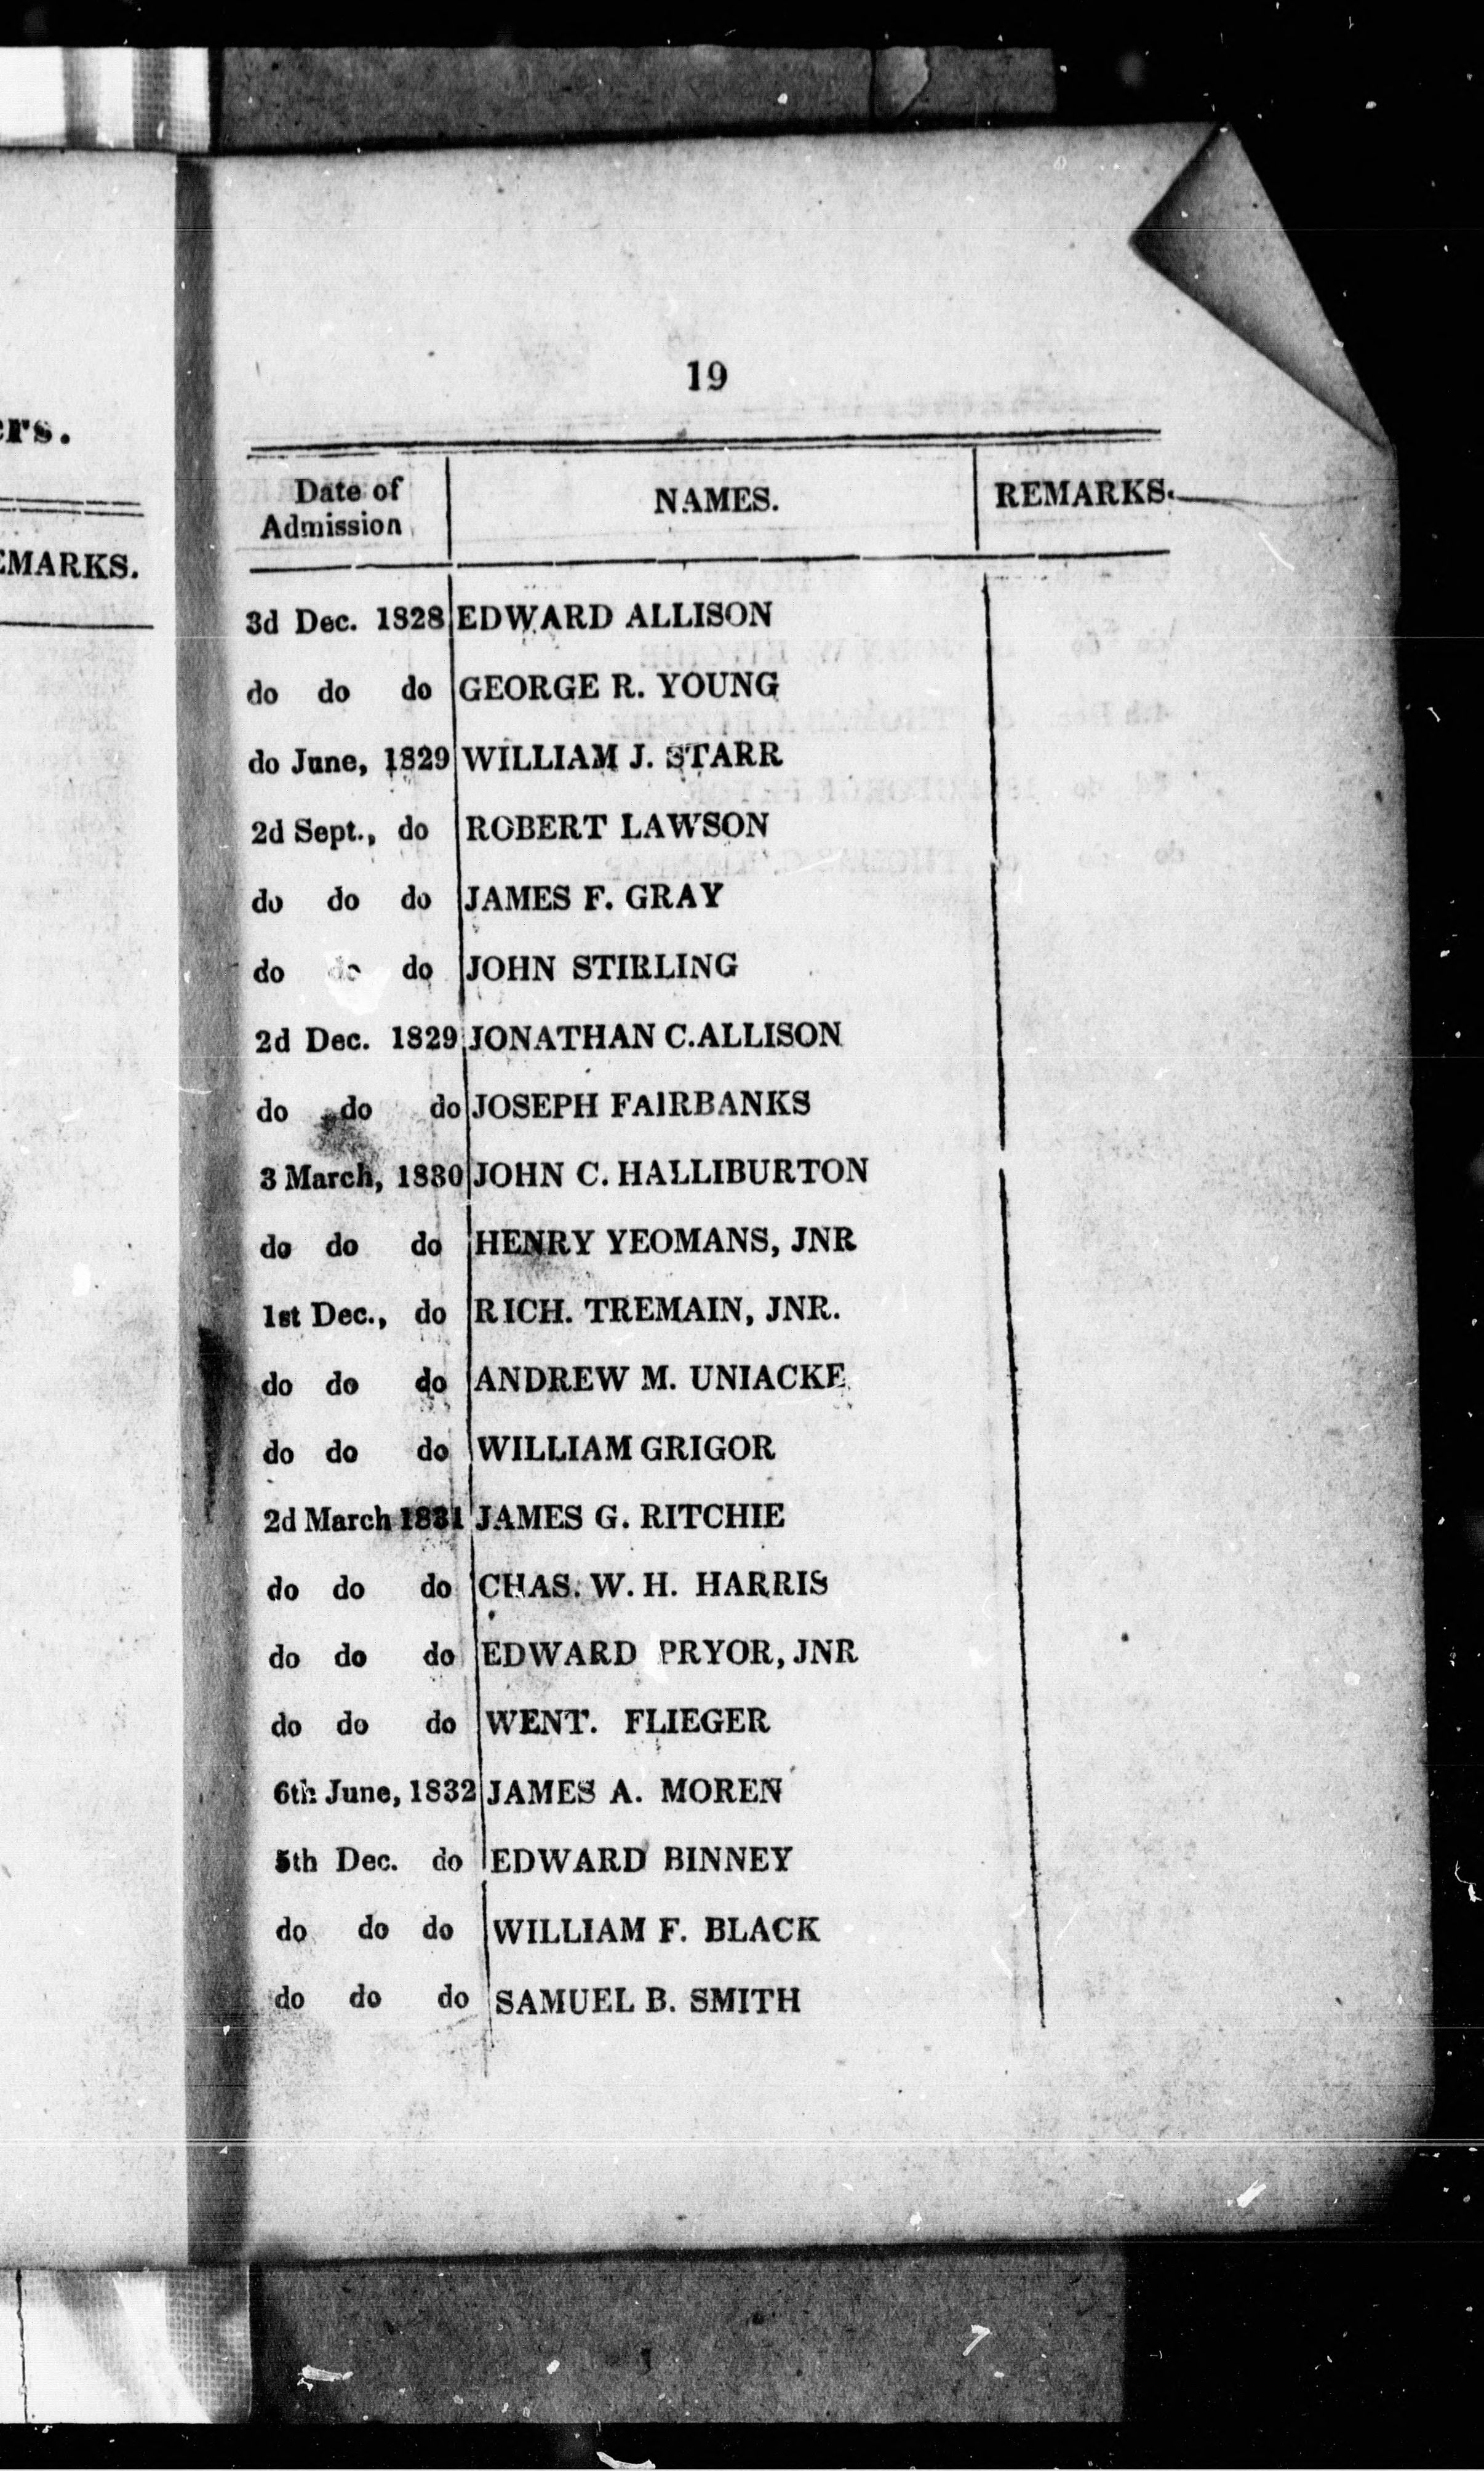 ers.
EMARKS.
19
Date of Admission NAMES. REMARKS.
3d Dec. 1828 EDWARD ALLISON
do do do GEORGE R. YOUNG
do June, 1829 WILLIAM J. STARR
2d Sept., do ROBERT LAWSON
do do do JAMES F. GRAY
do do do JOHN STIRLING
2d Dec. 1829 JONATHAN C. ALLISON
do do do JOSEPH FAIRBANKS
3 March, 1830 JOHN C. HALLIBURTON
do do do HENRY YEOMANS, JNR
1st Dec., do RICH. TREMAIN, JNR.
do do do ANDREW M. UNIACKE
do do do WILLIAM GRIGOR
2d March 1831 JAMES G. RITCHIE
do do do CHAS. W. H. HARRIS
do do do EDWARD PRYOR, JNR
do do do WENT. FLIEGER
6th June, 1832 JAMES A. MOREN
5th Dec. do EDWARD BINNEY
do do do WILLIAM F. BLACK
do do do SAMUEL B. SMITH